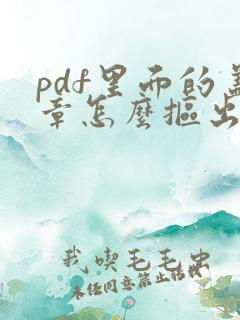 pdf里面的盖
章怎麼抠出
我喫毛毛虫
未经同意禁止搭讪